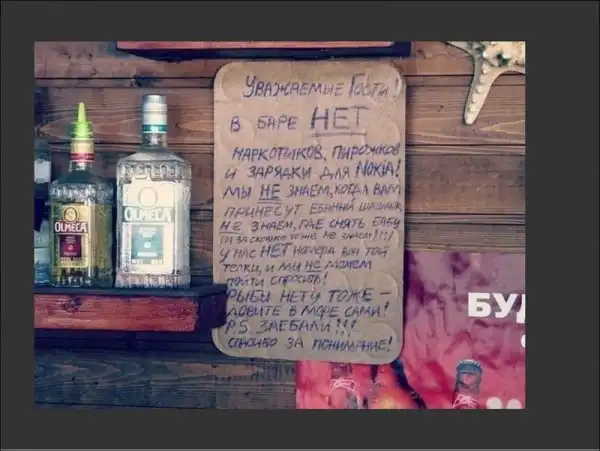 УВАЖАЕМЫЕ ГОСТИ!
В БАРЕ НЕТ
НАРКОТИКОВ, ПИРОЖКОВ
И ЗАРЯДКИ ДЛЯ NOKIA!
МЫ НЕ ЗНАЕМ, КОГДА ВАМ
ПРИНЕСУТ ЕБАННЫЙ ШАШЛЫК
НЕ ЗНАЕМ, ГДЕ СНЯТЬ БАБУ
(И ЗА СКОЛЬКО ТОЖЕ НЕ ЗНАЕМ)!!!!
У НАС НЕТ НОМЕРА ВОН ТОЙ
ТЕЛКИ, И МЫ НЕ МОЖЕМ
ПОЙТИ СПРОСИТЬ!
РЫБЫ НЕТУ ТОЖЕ –
ЛОВИТЕ В МОРЕ САМИ!
P.S ЗАЕБАЛИ!!!
СПАСИБО ЗА ПОНИМАНИЕ!
OLMECA
OLMECA
БУД